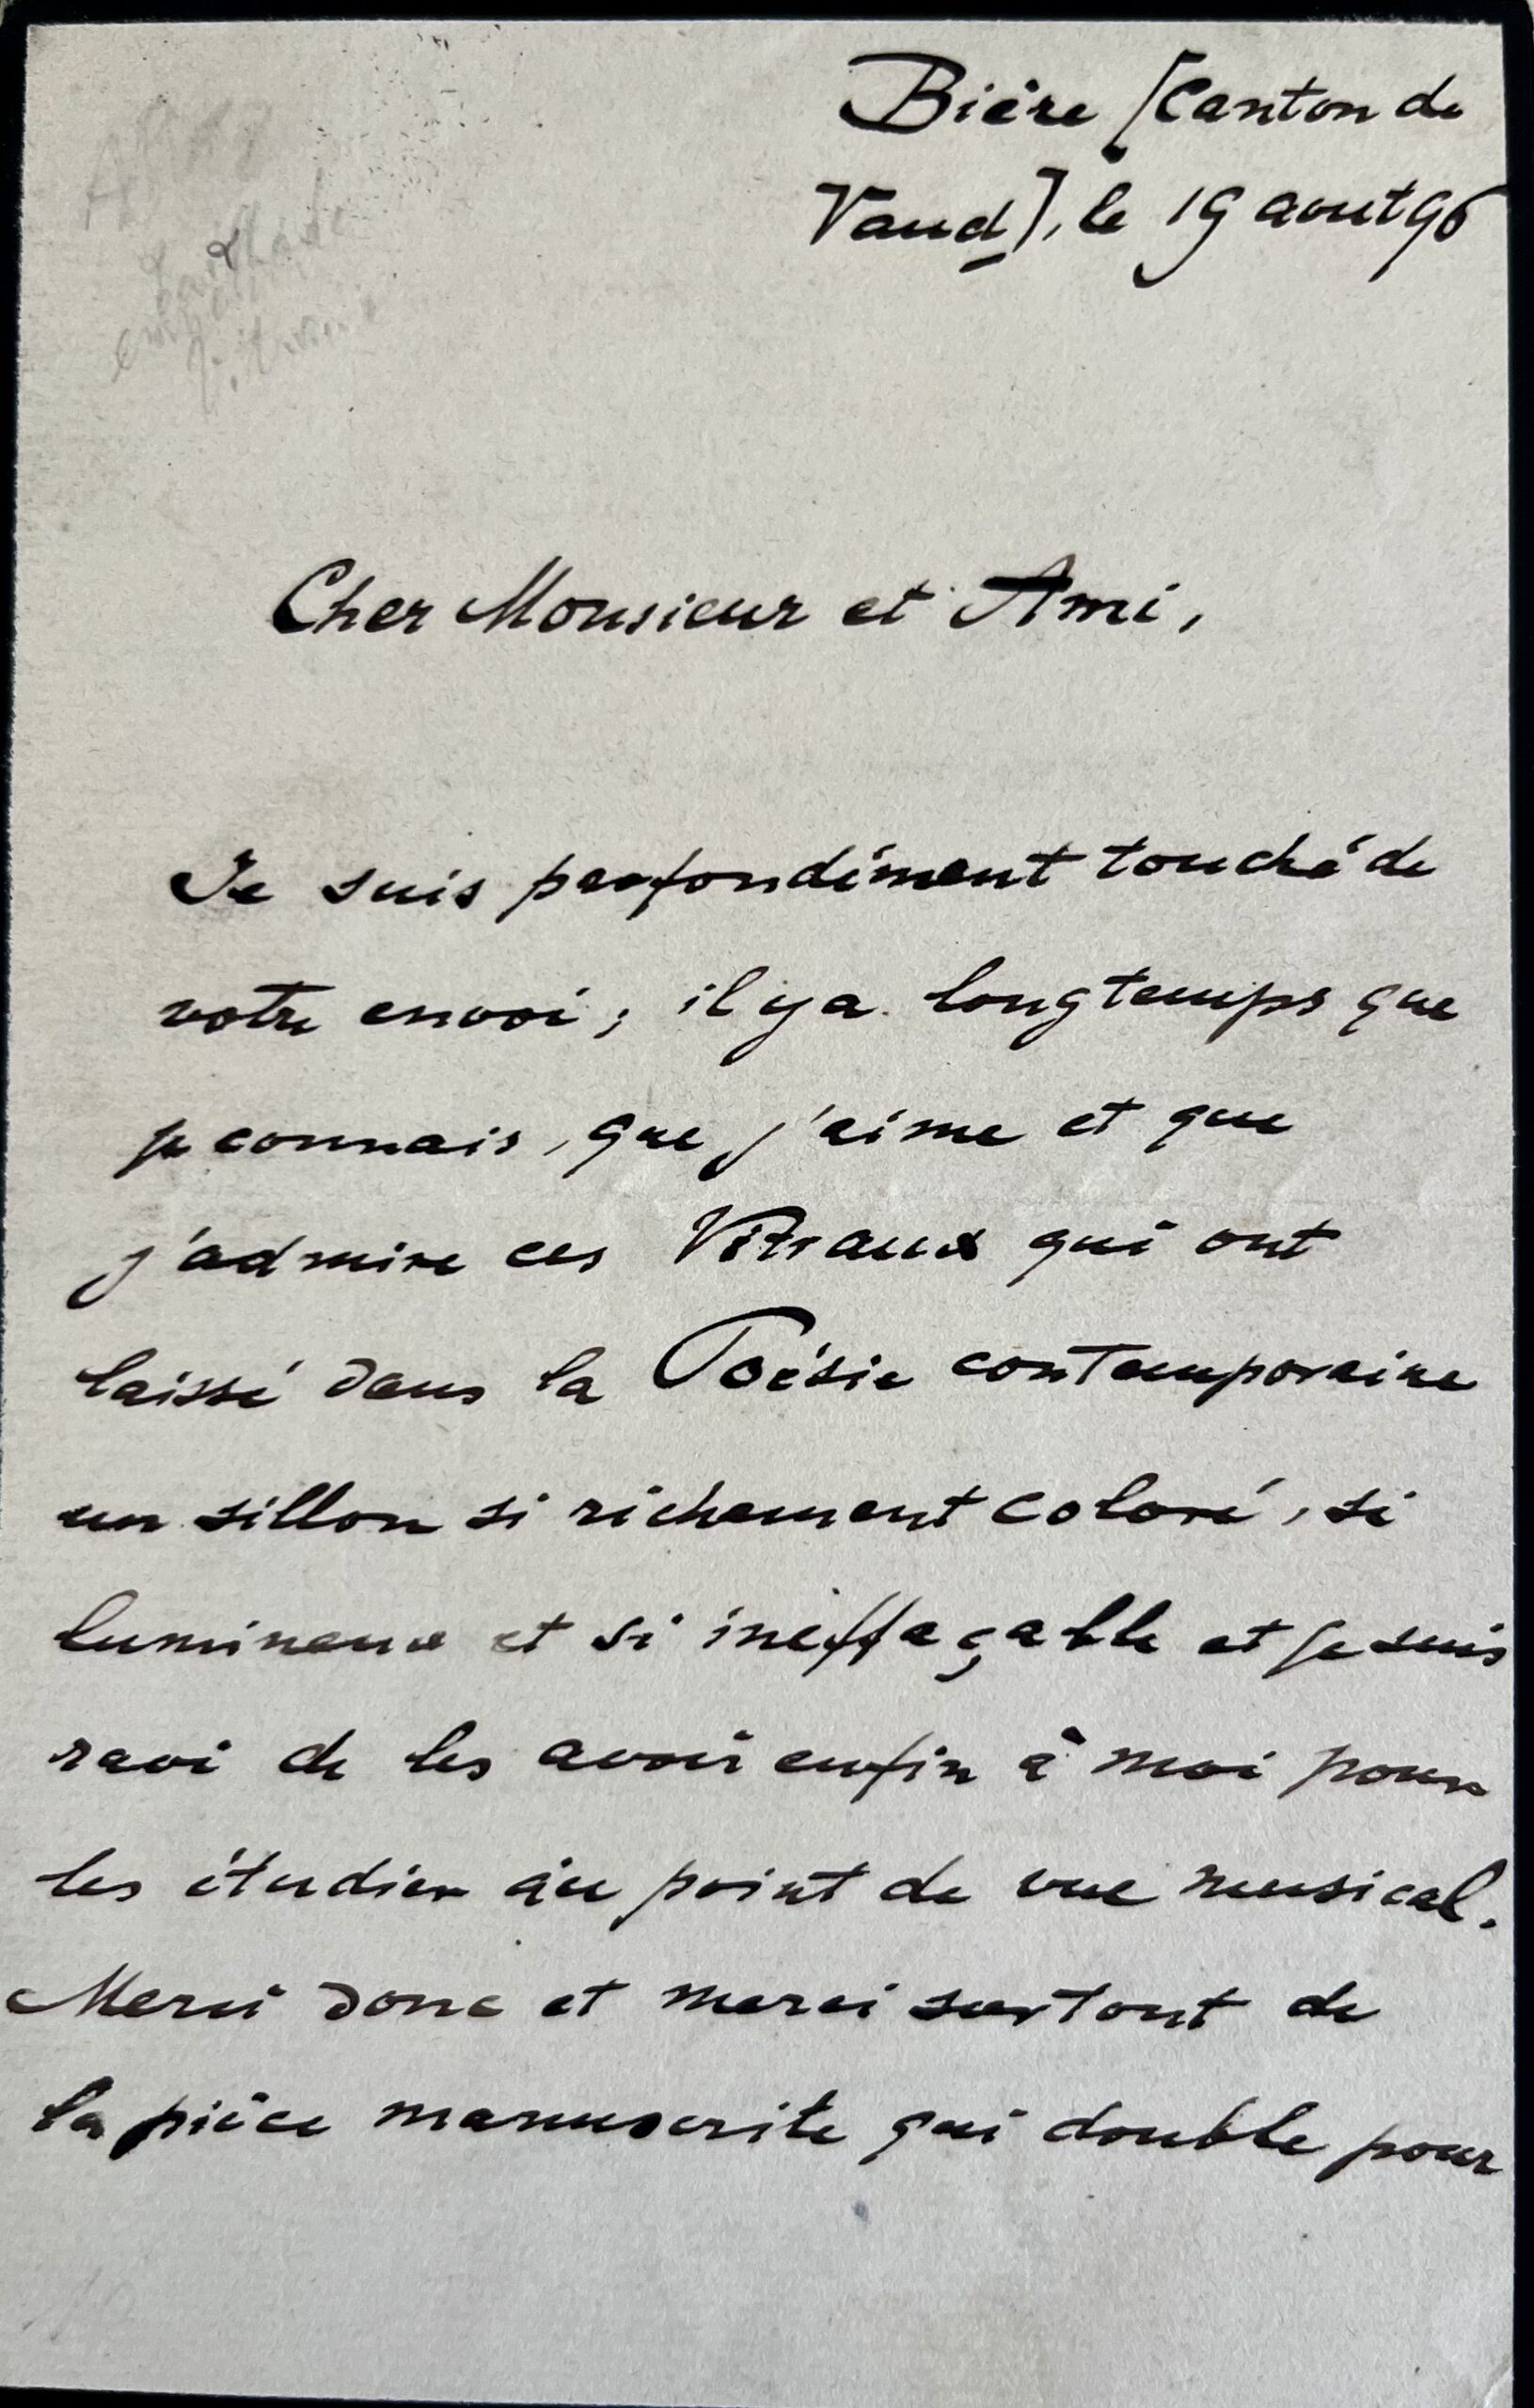 Bière [Canton de
Vaud], le 19 aout 96
Cher Monsieur et Ami,
Je suis profondément touché de
votre envoi ; il y a longtemps que
je connais, que j'aime et que
j'admire ces Vitraux qui ont
laissé dans la Poésie contemporaine
un sillon si richement coloré, si
lumineux et si ineffaçable et je suis
ravi de les avoir enfin à moi pour
les étudier au point de vue musical.
Merci donc et merci surtout de
la pièce manuscrite qui double pour